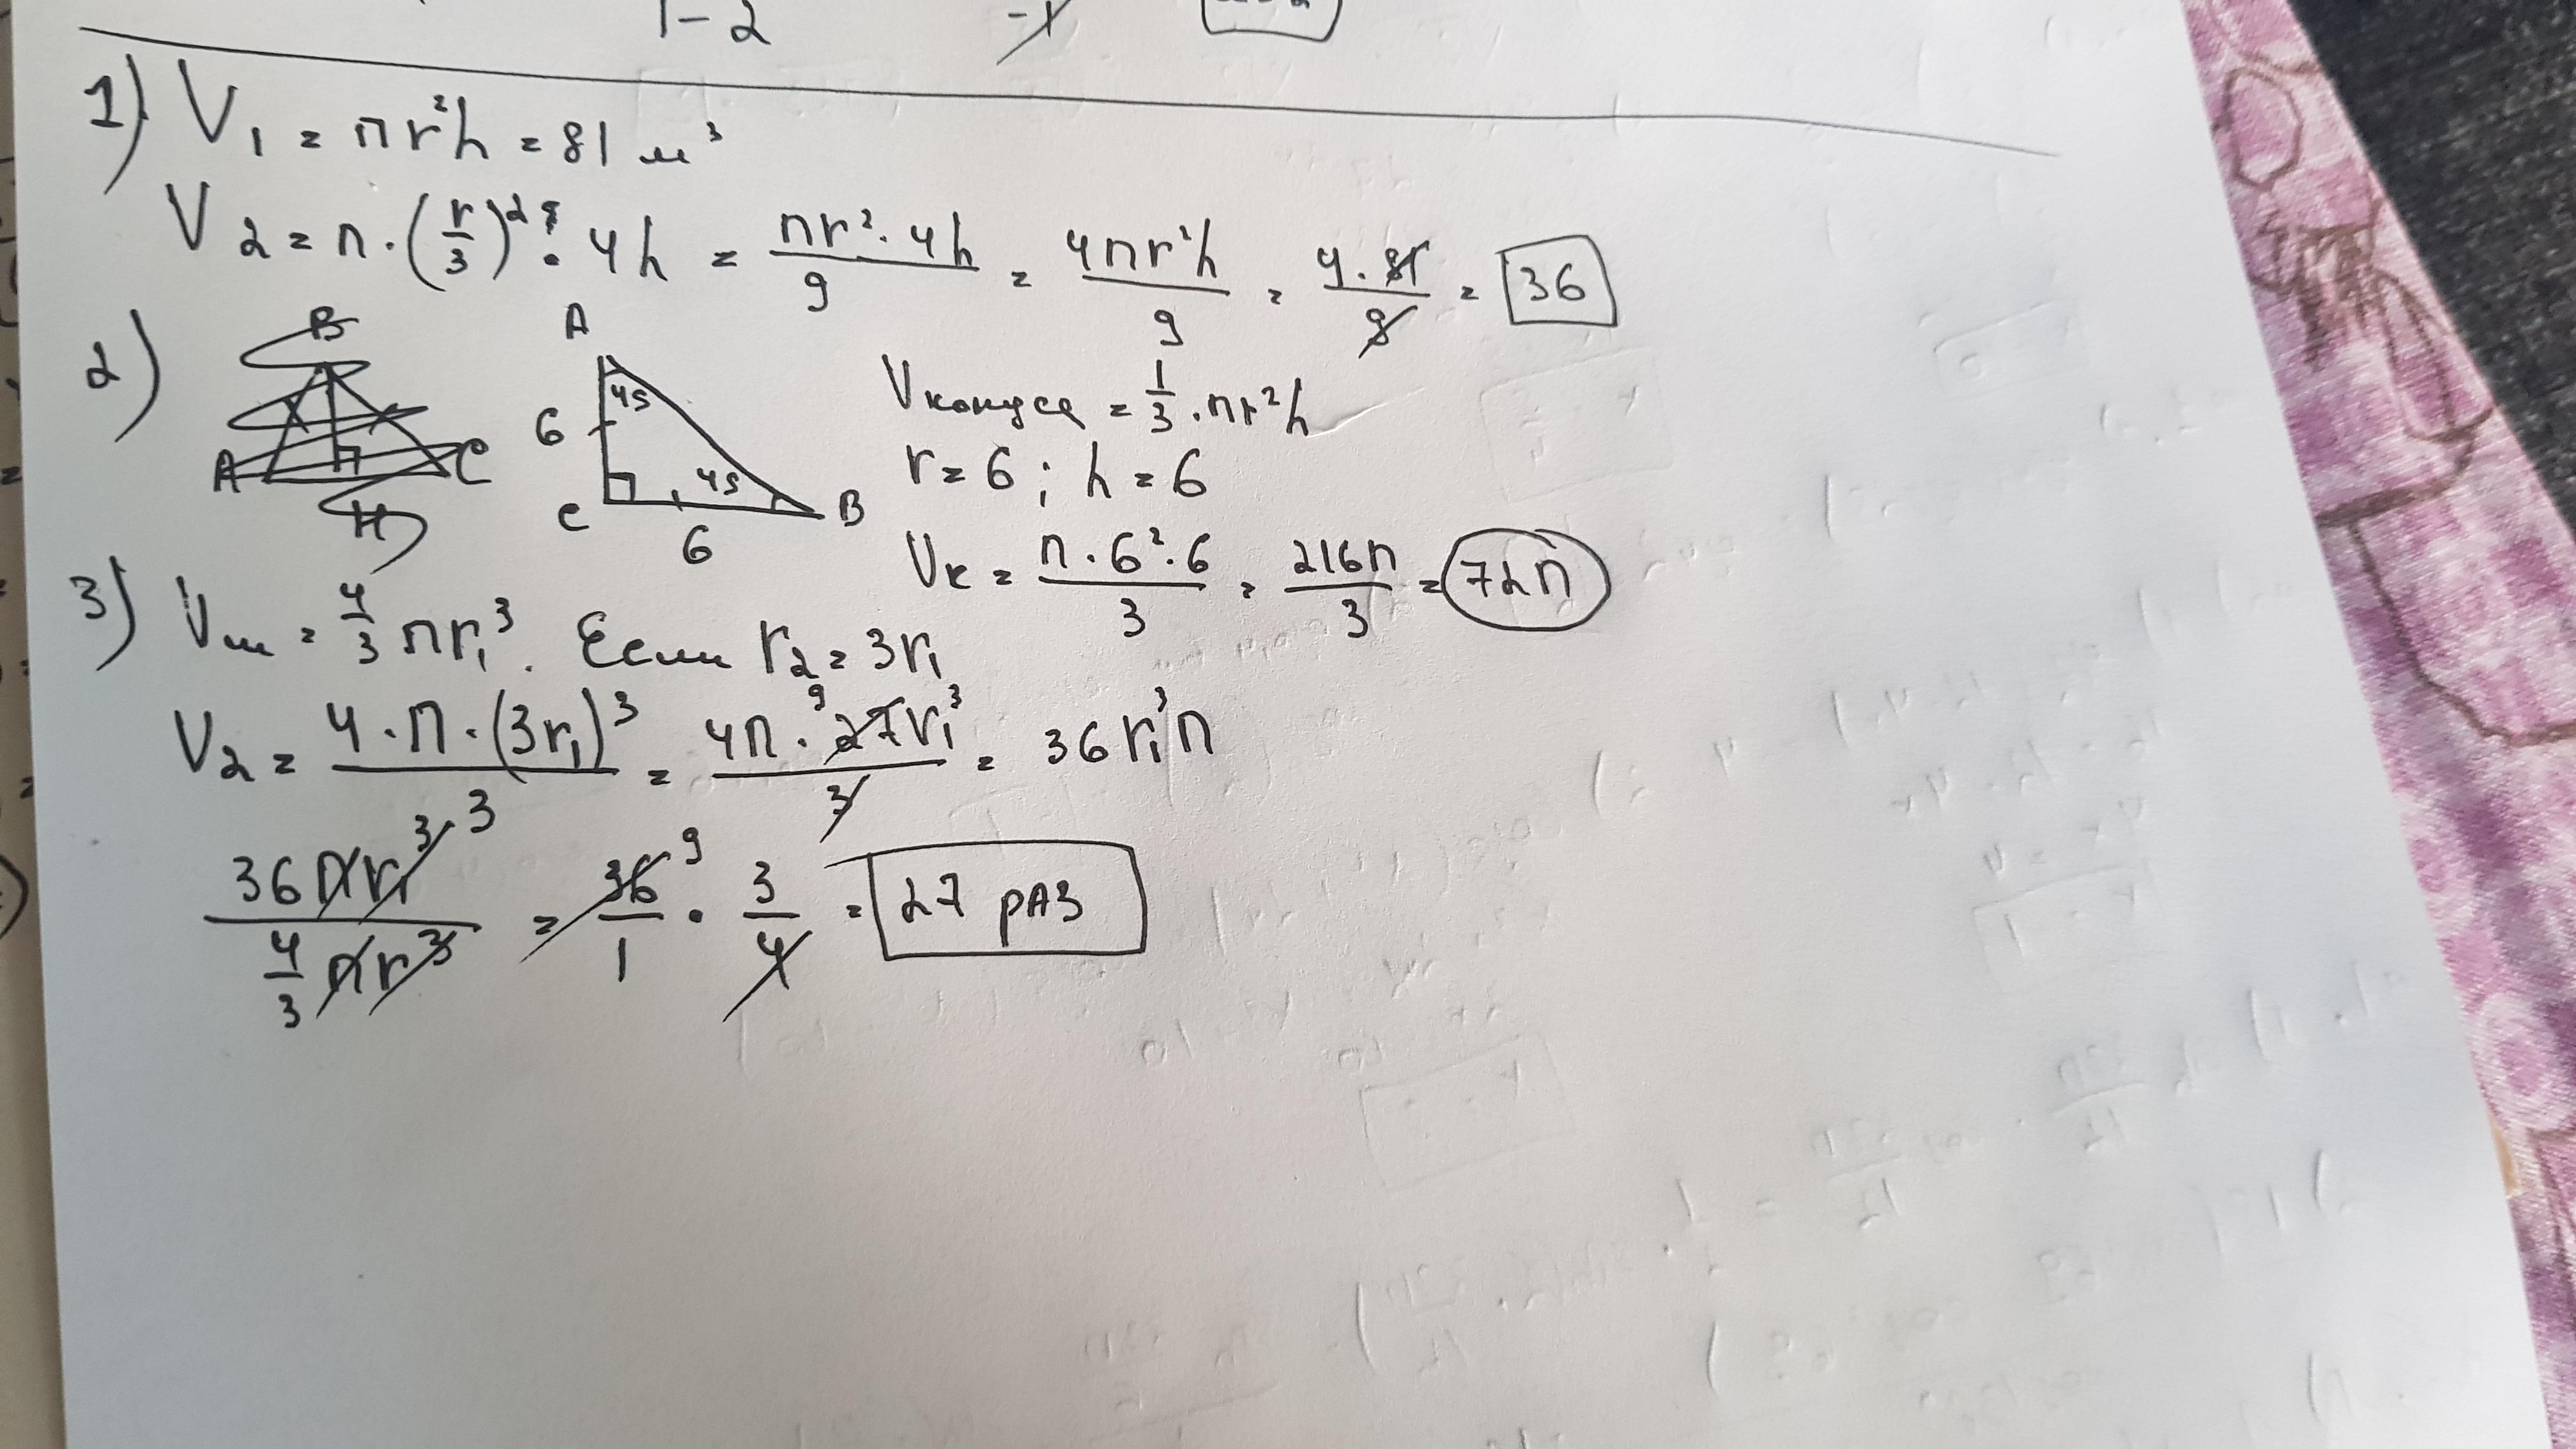 1 - 2 -1
1) V₁ = πr²h = 81 м³
V₂ = π · (r/3)² · 4h = πr² · 4h / 9 = 4πr²h / 9 = 4 · 81 / 9 = 36
2) B A C H
A 45 6 C 45 6 B
Vконуса = 1/3 · πr²h
r = 6 ; h = 6
Vк = π · 6² · 6 / 3 = 216π / 3 = 72π
3) Vш = 4/3 πr₁³. Если r₂ = 3r₁
V₂ = 4 · π · (3r₁)³ / 3 = 4π · 27r₁³ / 3 9 = 36r₁³π
36πr₁³ · 3 / 4/3 πr³ = 36 9 / 1 · 3/4 = 27 РАЗ